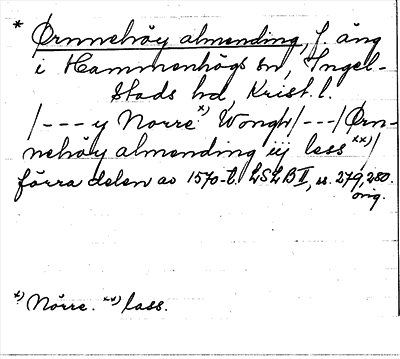 * Ørnnehöy almending, f. äng
i Hammenhögs sn, Ingel-
stads hd, Krist. l.
/--- y Norre x) Wongh/---/Ørn-
nehöy almending iij less xx)/
förra delen av 1570-t. LSLB II, s. 279, 280.
orig.
x) Nörre. xx) lass.